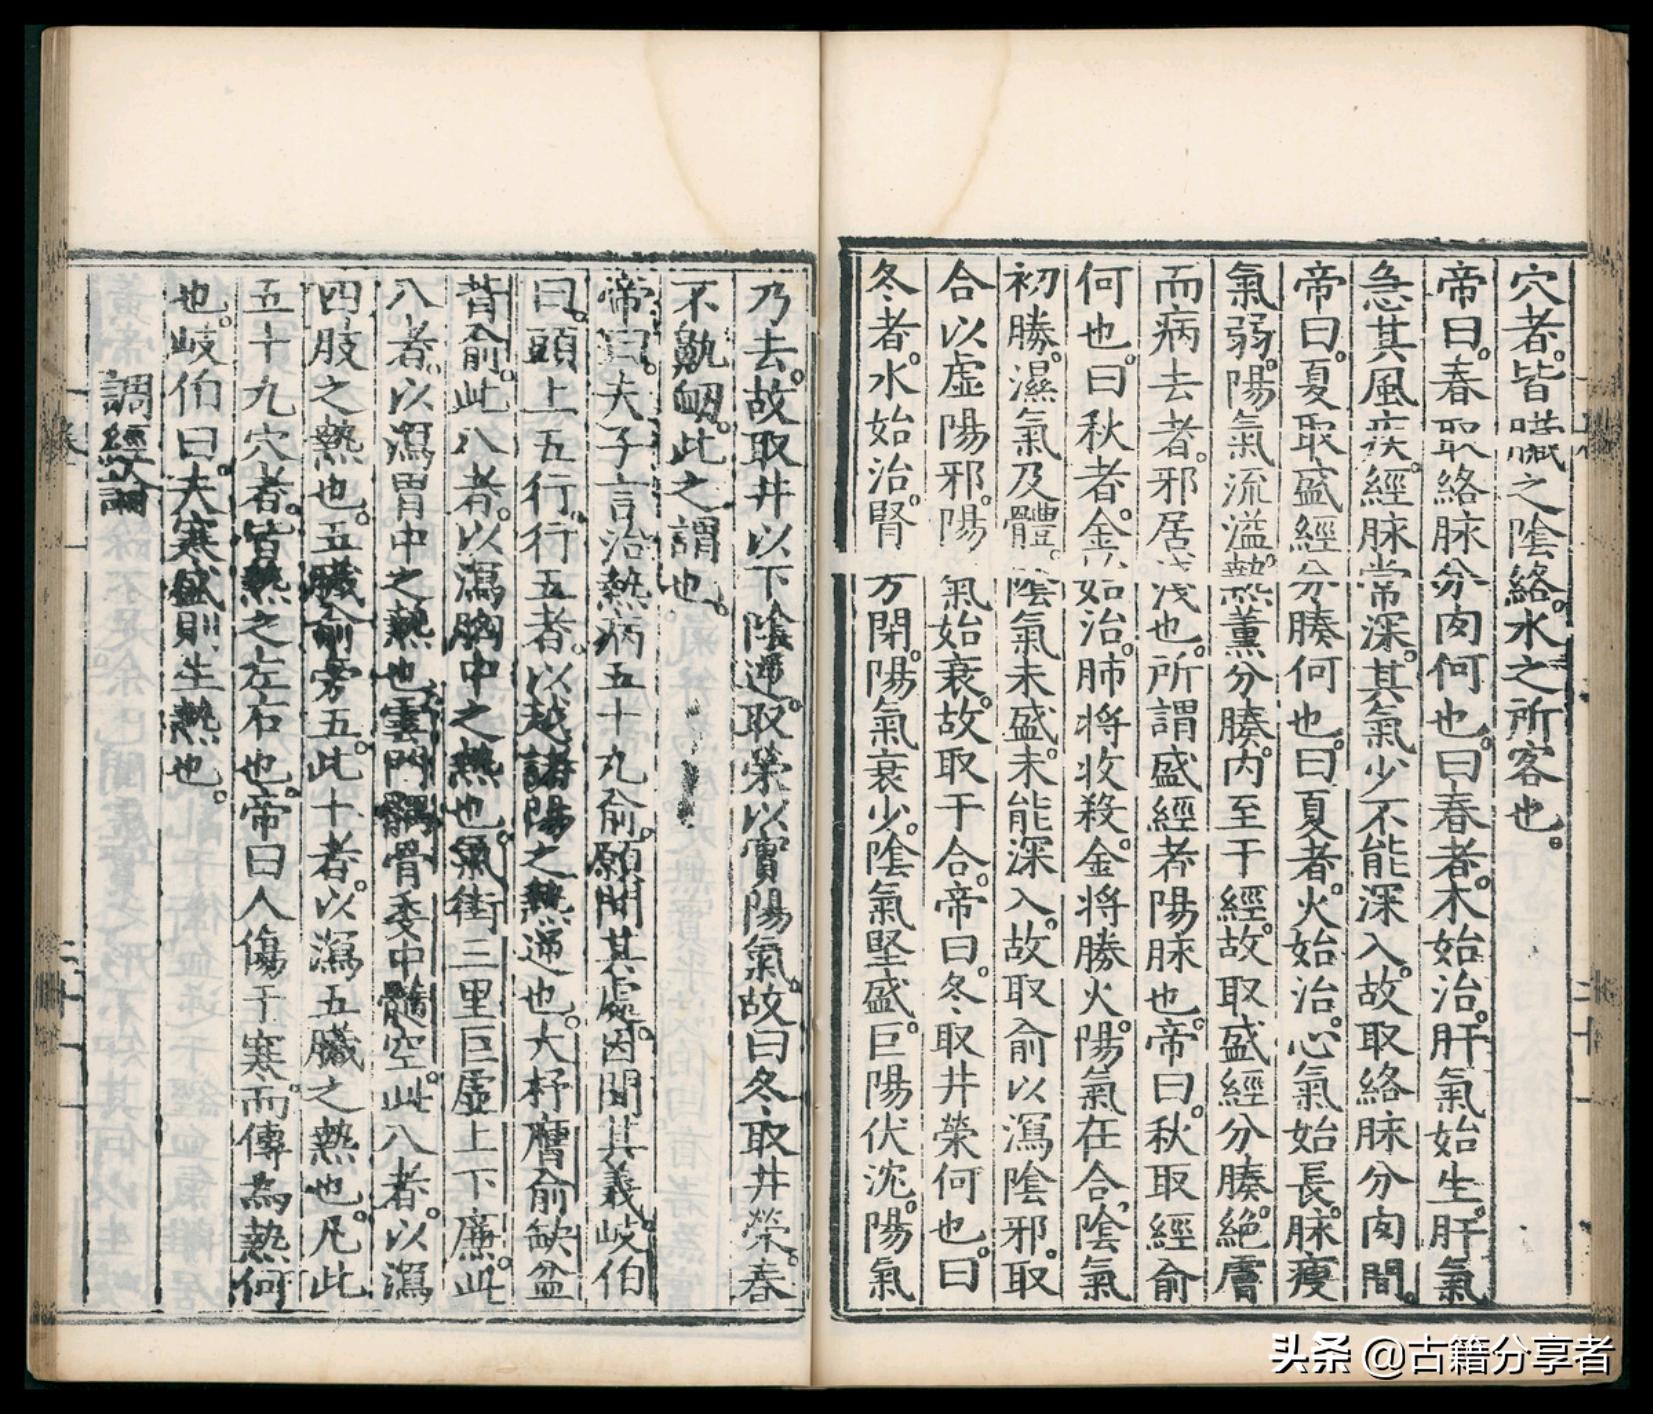 穴者。皆臟之陰絡。水之所客也。
帝曰。春取絡脉分肉何也。曰春者。木始治。肝氣始生。肝氣
急其風疾。經脉常深。其氣少不能深入。故取絡脉分肉間。
帝曰。夏取盛經分腠何也。曰夏者。火始治。心氣始長。脉瘦
氣弱。陽氣流溢。熱薰分腠。内至于經。故取盛經分腠。絶膚
而病去者。邪居淺也。所謂盛經者陽脉也。帝曰。秋取經俞
何也。曰秋者。金始治。肺將收殺。金將勝火。陽氣在合。陰氣
初勝。濕氣及體。陰氣未盛。未能深入。故取俞以瀉陰邪。取
合以虛陽邪。陽氣始衰。故取于合。帝曰。冬取井榮何也。曰
冬者。水始治。腎方閉。陽氣衰少。陰氣堅盛。巨陽伏沈。陽氣
乃去。故取井以下陰逆。取榮以實陽氣。故曰冬取井榮。春
不鼽衂。此之謂也。
帝曰。夫子言治熱病五十九俞。願聞其處。因聞其義。岐伯
曰。頭上五行。行五者。以越諸陽之熱逆也。大杼膺俞缺盆
背俞。此八者。以瀉胸中之熱也。氣街三里巨虛上下廉。此
八者。以瀉胃中之熱也。雲門髃骨委中髓空。此八者。以瀉
四肢之熱也。五臟俞旁五。此十者。以瀉五臟之熱也。凡此
五十九穴者。皆熱之左右也。帝曰人傷于寒。而傳為熱何
也。岐伯曰。夫寒盛則生熱也。
調經論
头条 @古籍分享者